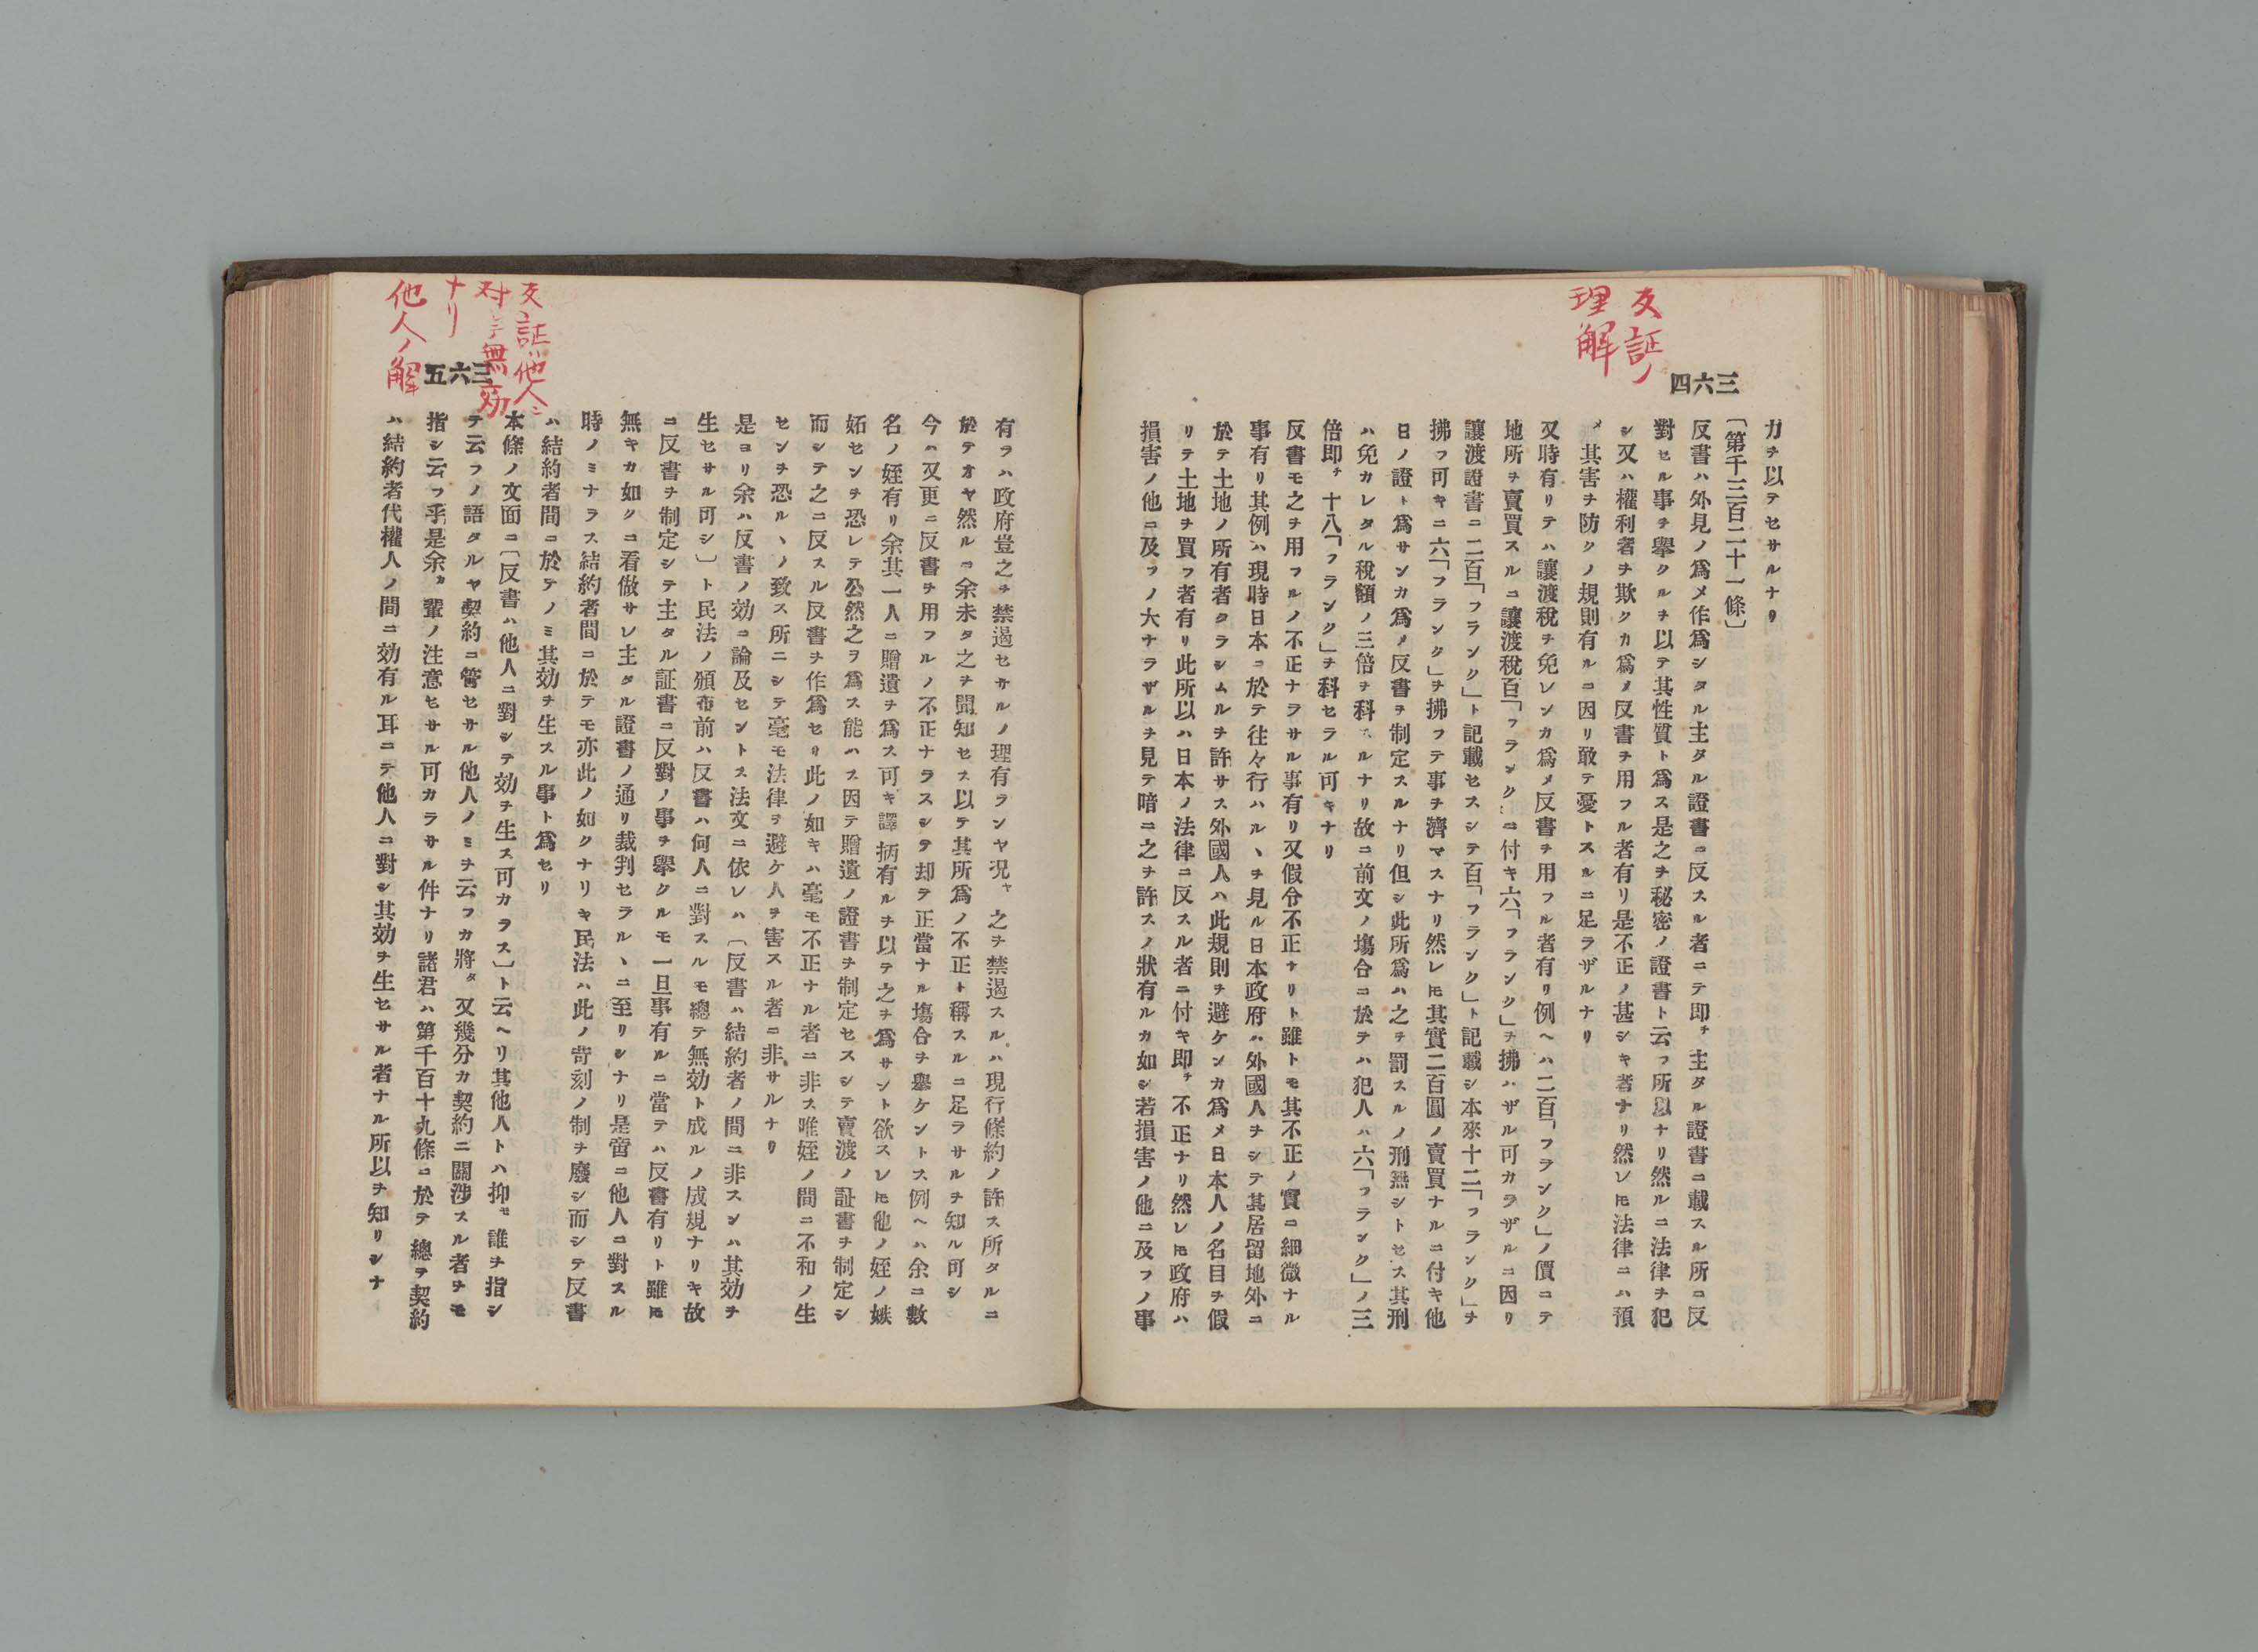 反証ノ
理解
四六三
カヲ以テセサルナリ
〔第千三百二十一條〕
反書ハ外見ノ爲メ作爲シタル主タル證書ニ反スル者ニテ即チ主タル證書ニ載スル所ニ反
對セル事ヲ擧クルヲ以テ其性質ト爲ス是之ヲ秘密ノ證書ト云フ所以ナリ然ルニ法律ヲ犯
シ又ハ權利者ヲ欺クカ爲メ反書ヲ用フル者有リ是不正ノ甚シキ者ナリ然レ𪜈法律ニハ預
メ其害ヲ防クノ規則有ルニ因リ敢テ憂トスルニ足ラザルナリ
又時有リテハ讓渡税ヲ免レンカ爲メ反書ヲ用フル者有リ例ヘハ二百「フランク」ノ價ニテ
地所ヲ賣買スルニ讓渡税百「フランク」ニ付キ六「フランク」ヲ拂ハザル可カラザルニ因リ
讓渡證書ニ二百「フランク」ト記載セスシテ百「フランク」ト記載シ本來十二「フランク」ヲ
拂フ可キニ六「フランク」ヲ拂フテ事ヲ濟マスナリ然レ𪜈其實二百圓ノ賣買ナルニ付キ他
日ノ證ト爲サンカ爲メ反書ヲ制定スルナリ但シ此所爲ハ之ヲ罰スルノ刑無シトセス其刑
ハ免カレタル税額ノ三倍ヲ科スルナリ故ニ前文ノ塲合ニ於テハ犯人ハ六「フランク」ノ三
倍即チ十八「フランク」ヲ科セラル可キナリ
反書モ之ヲ用フルノ不正ナラサル事有リ又假令不正ナリト雖トモ其不正ノ實ニ細微ナル
事有リ其例ハ現時日本ニ於テ往々行ハルヽヲ見ル日本政府ハ外國人ヲシテ其居留地外ニ
於テ土地ノ所有者タラシムルヲ許サス外國人ハ此規則ヲ避ケンカ爲メ日本人ノ名目ヲ假
リテ土地ヲ買フ者有リ此所以ハ日本ノ法律ニ反スル者ニ付キ即チ不正ナリ然レ𪜈政府ハ
損害ノ他ニ及フノ大ナラザルヲ見テ暗ニ之ヲ許スノ狀有ルカ如シ若損害ノ他ニ及フノ事
反証ハ他人ニ
対シ無効
ナリ
他人ノ解
五六三
有ラハ政府豈之ヲ禁遏セサルノ理有ランヤ况ヤ之ヲ禁遏スルハ現行條約ノ許ス所タルニ
於テオヤ然ルニ余未タ之ヲ聞知セス以テ其所爲ノ不正ト稱スルニ足ラサルヲ知ル可シ
今ハ又更ニ反書ヲ用フルノ不正ナラスシテ却テ正當ナル塲合ヲ擧ケントス例ヘハ余ニ數
名ノ姪有リ余其一人ニ贈遺ヲ爲ス可キ譯柄有ルヲ以テ之ヲ爲サント欲スレ𪜈他ノ姪ノ嫉
妬センヲ恐レテ公然之ヲ爲ス能ハス因テ贈遺ノ證書ヲ制定セスシテ賣渡ノ証書ヲ制定シ
而シテ之ニ反スル反書ヲ作爲セリ此ノ如キハ毫モ不正ナル者ニ非ス唯姪ノ間ニ不和ノ生
センヲ恐ルヽノ致ス所ニシテ毫モ法律ヲ避ケ人ヲ害スル者ニ非サルナリ
是ヨリ余ハ反書ノ効ニ論及セントス法文ニ依レハ〔反書ハ結約者ノ間ニ非スンハ其効ヲ
生セサル可シ〕ト民法ノ頒布前ハ反書ハ何人ニ對スルモ總テ無効ト成ルノ成規ナリキ故
ニ反書ヲ制定シテ主タル証書ニ反對ノ事ヲ擧クルモ一旦事有ルニ當テハ反書有リト雖𪜈
無キカ如クニ看做サレ主タル證書ノ通リ裁判セラルヽニ至リシナリ是啻ニ他人ニ對スル
時ノミナラス結約者間ニ於テモ亦此ノ如クナリキ民法ハ此ノ苛刻ノ制ヲ廢シ而シテ反書
ハ結約者間ニ於テノミ其効ヲ生スル事ト爲セリ
本條ノ文面ニ〔反書ハ他人ニ對シテ効ヲ生ス可カラス〕ト云ヘリ其他人トハ抑モ誰ヲ指シ
テ云フノ語タルヤ契約ニ管セサル他人ノミヲ云フカ將タ又幾分カ契約ニ關涉スル者ヲモ
指シ云フ乎是余カ輩ノ注意セサル可カラサル件ナリ諸君ハ第千百十九條ニ於テ總テ契約
ハ結約者代權人ノ間ニ効有ル耳ニテ他人ニ對シ其効ヲ生セサル者ナル所以ヲ知リシナ